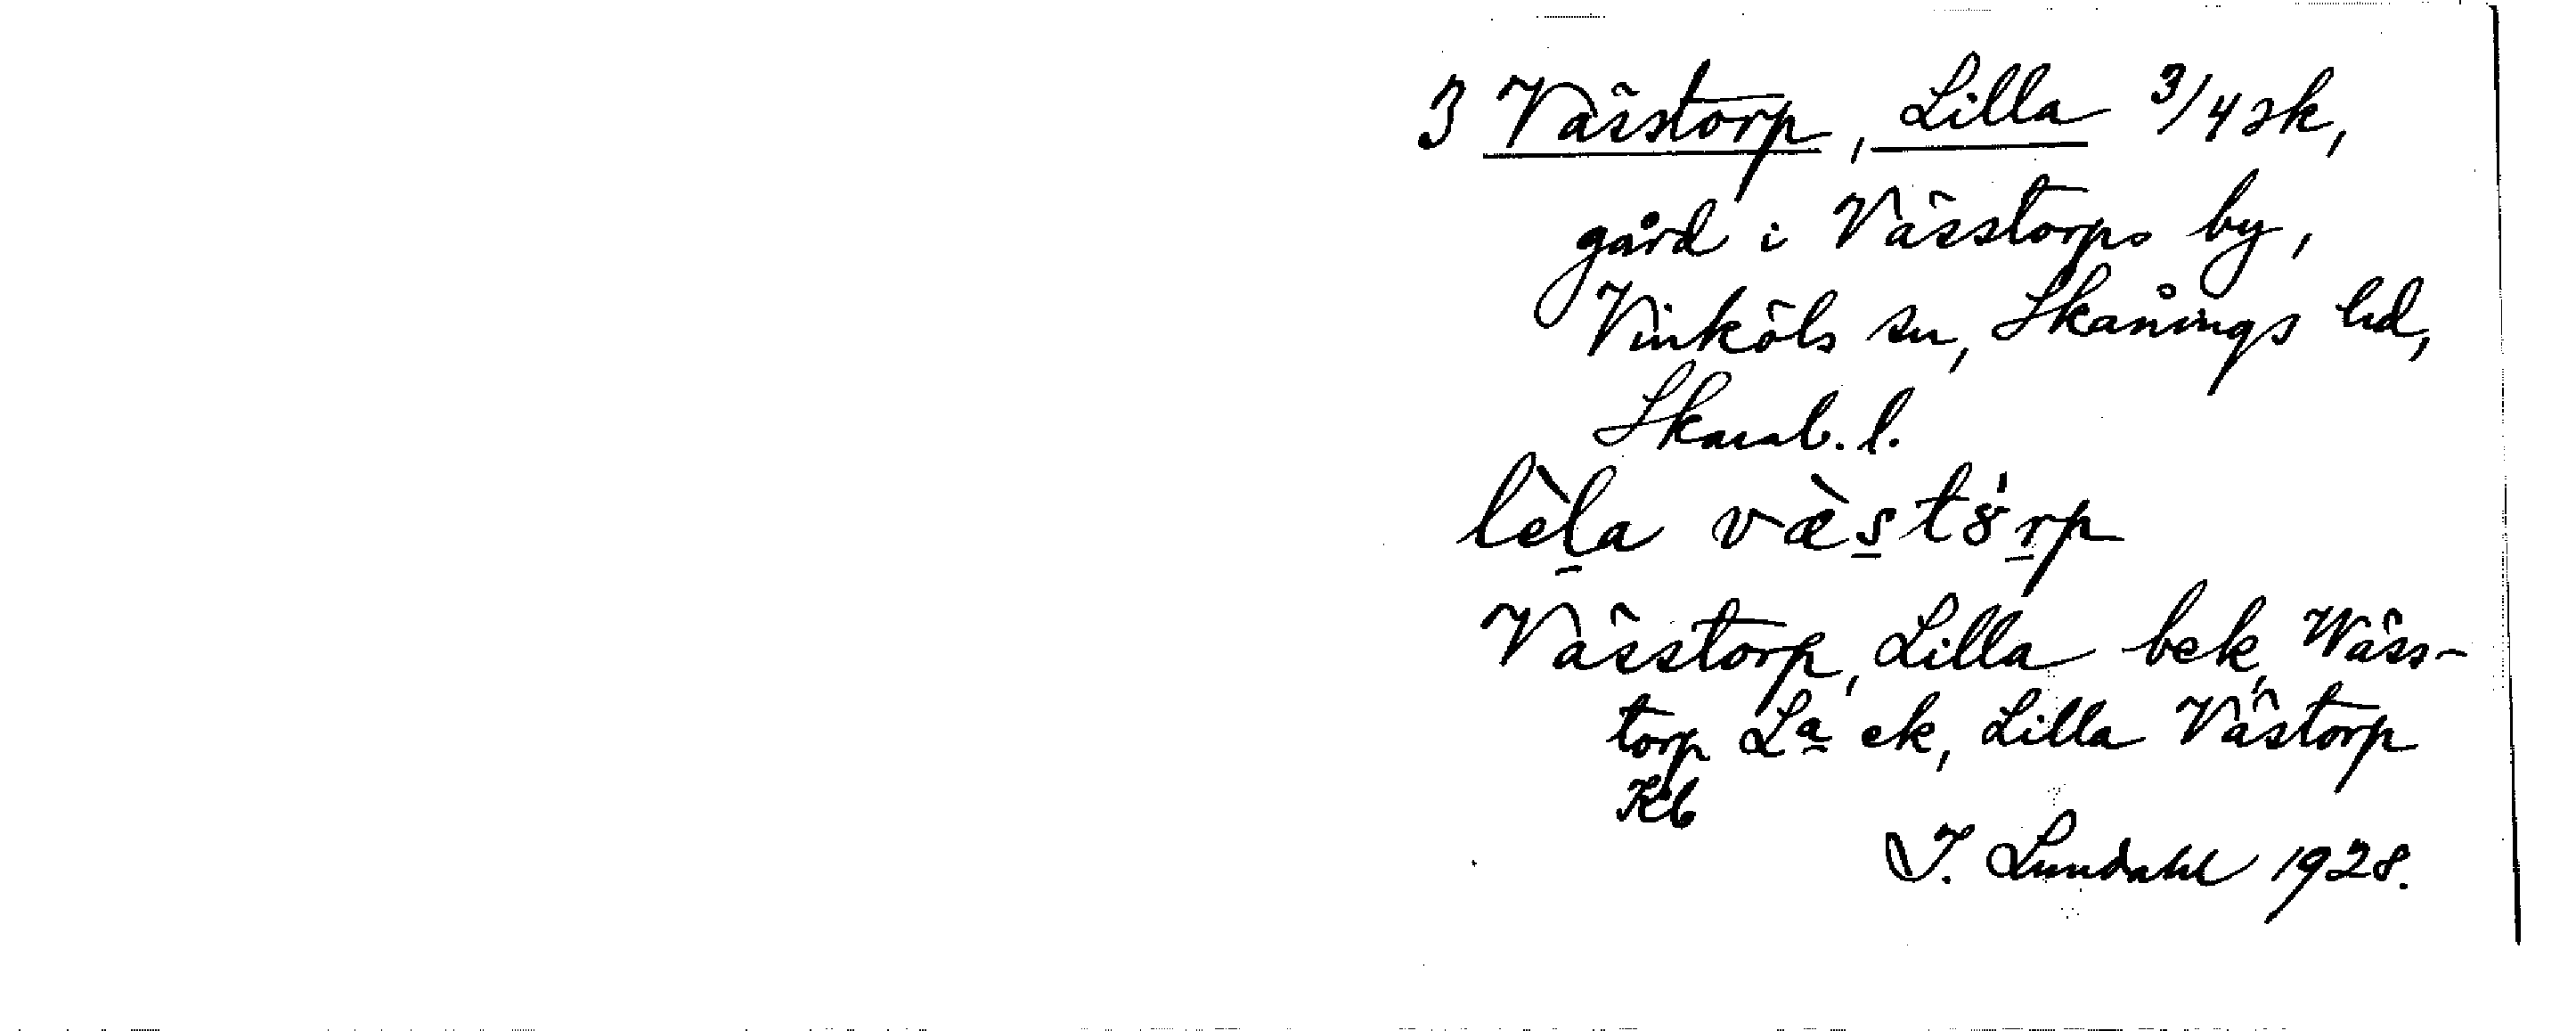 3 Vässtorp, Lilla 3/4 sk,
gård i Vässtorps by,
Vinköls sn, Skånings hd,
Skarab. l.
lèla væ̀st8́rp
Vässtorp, Lilla bek, Wäss-
torp La ek, Lilla Västorp
Kb
I. Lundahl 1928.